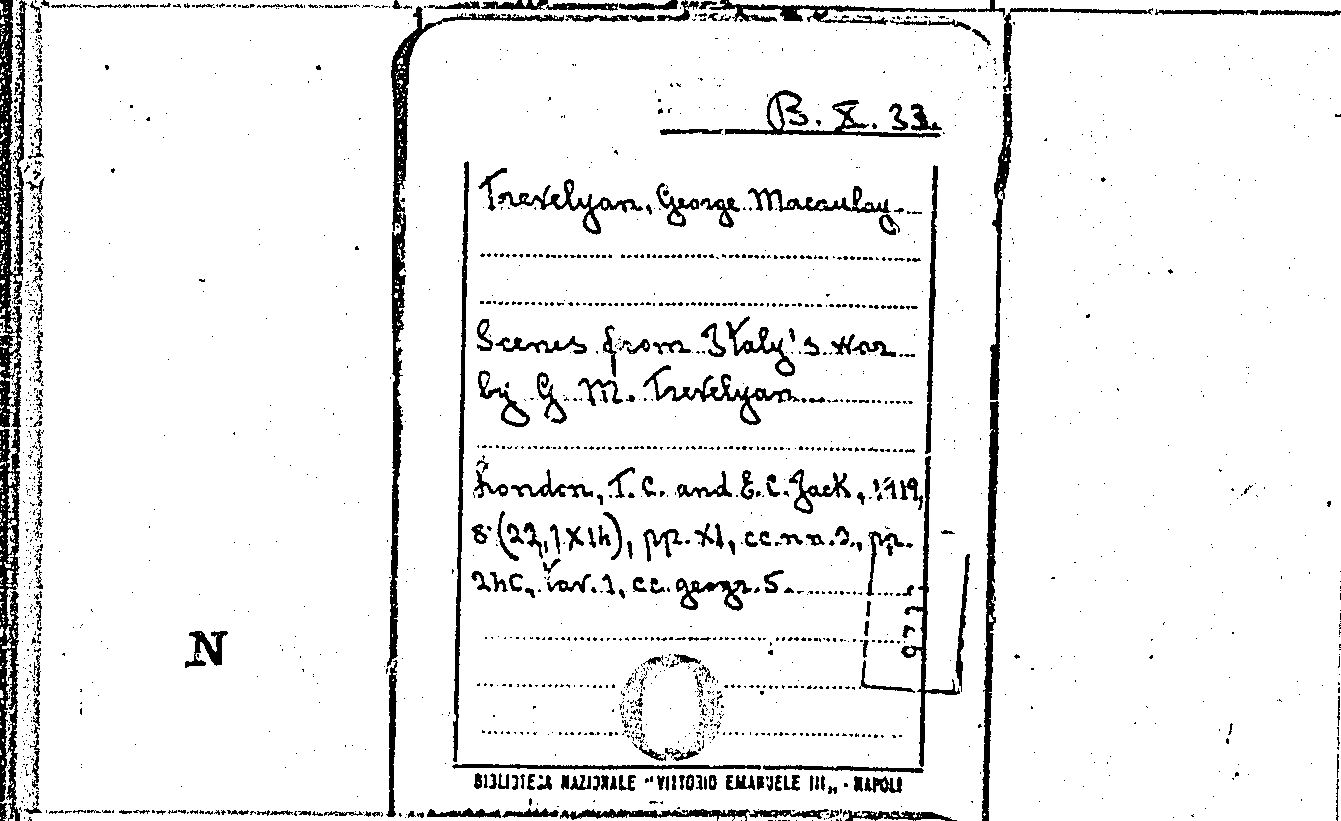 B. X. 33.
Trevelyan, George Macaulay
Scenes from Italy's war
by G. M. Trevelyan
London, T. C. and E. C. Jack, 1919,
8° (22,1X14), pp. XI, cc. nn. 2, pp.
240, tav. 1, cc. geogr. 5.
N
BIBLIOTECA NAZIONALE "VITTORIO EMANUELE III„ - NAPOLI